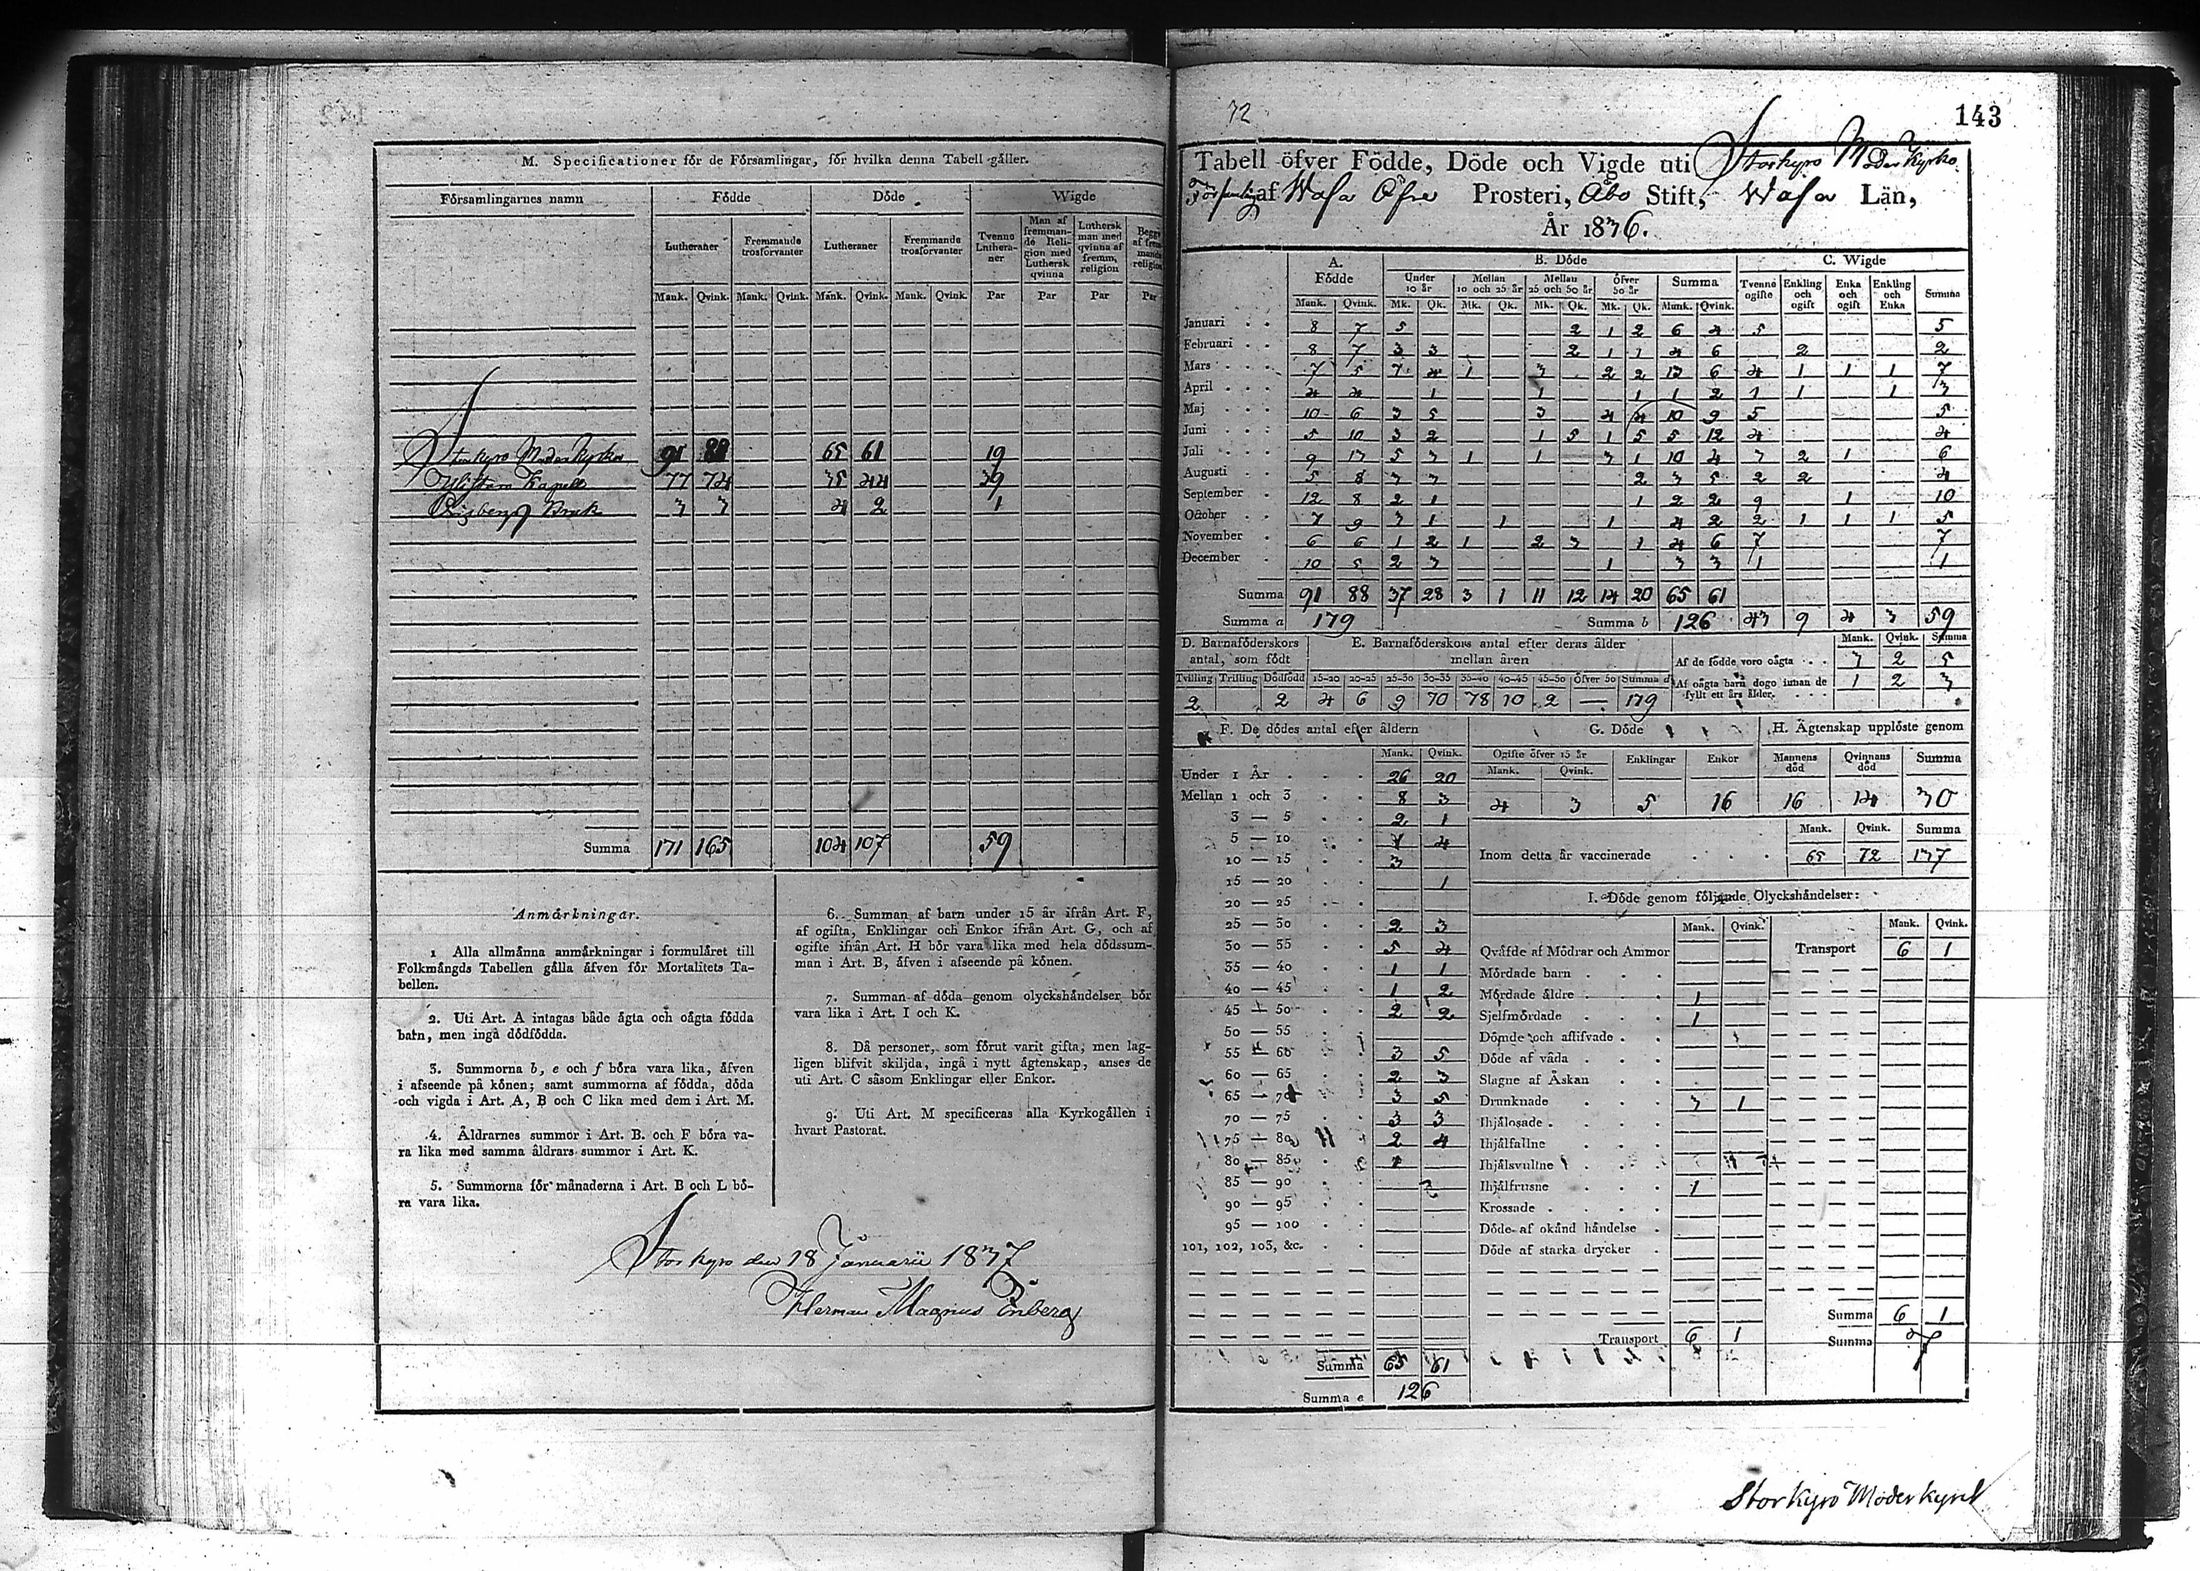 M. Specificationer för de Församlingar, för hvilka denna Tabell gäller.
Församlingarnes namn
Födde Döde Wigde
Lutheraner Fremmande trosförvanter Lutheraner Fremmande trosförvanter Tvenne Lutheraner Man af fremmande Religion med Luthersk qvinna Luthersk man med qvinna af fremm. religion
Mank. Qvink. Mank. Qvink. Mank. Qvink. Mank. Qvink. Par Par Par Par
Storkyro Moderkyrka 91 88 65 61 19
Kapell 77 74 35 44 39
Bruk 3 3 4 2 1
Summa 171 165 104 107 59
Anmärkningar.
1 Alla allmänna anmärkningar i formuläret till
Folkmängds Tabellen gälla äfven för Mortalitets Ta-
bellen.
2. Uti Art. A intagas både ägta och oägta födda
barn, men ingå dödfödda.
3. Summorna b, e och f böra vara lika, äfven
i afseende på könen; samt summorna af födda, döda
och vigda i Art. A, B och C lika med dem i Art. M.
4. Åldrarnes summor i Art. B. och F böra va-
ra lika med samma åldrars summor i Art. K.
5. Summorna för månaderna i Art. B och L bö-
ra vara lika.
6. Summan af barn under 15 år ifrån Art. F,
af ogifta, Enklingar och Enkor ifrån Art. G, och af
gifte ifrån Art. H bör vara lika med hela dödssum-
man i Art. B, äfven i afseende på könen.
7. Summan af döda genom olyckshändelser bör
vara lika i Art. I och K.
8. Då personer, som förut varit gifta, men lag-
ligen blifvit skiljda, ingå i nytt ägtenskap, anses de
uti Art. C såsom Enklingar eller Enkor.
9. Uti Art. M specificeras alla Kyrkogällen i
hvart Pastorat.
Storkyro den 18 Januarii 1837
Herman Magnus Önberg
72
143
Tabell öfver Födde, Döde och Vigde uti Storkyro Moder Kyrko
Församling af Wasa Öfre Prosteri, Åbo Stift, Wasa Län,
År 1836.
A. Födde B. Döde C. Wigde
Under 10 år Mellan 10 och 25 år Mellan 25 och 50 år öfver 50 år Summa Tvenne ogifte Enkling och ogift Enka och ogift Enkling och Enka Summa
Mank. Qvink. Mk. Qk. Mk. Qk. Mk. Qk. Mk. Qk. Mank. Qvink.
Januari 8 7 5 2 1 2 6 4 5 5
Februari 8 7 3 3 2 1 1 4 6 2 2
Mars 7 5 7 4 1 3 2 2 13 6 4 1 1 1 7
April 4 4 1 1 1 1 2 1 1 1 3
Maj 10 6 3 5 3 4 4 10 9 5 5
Juni 5 10 3 2 1 5 1 5 5 12 4 4
Juli 9 13 5 3 1 1 3 1 10 4 3 2 1 6
Augusti 5 8 3 3 2 3 5 2 2 4
September 12 8 2 1 1 2 2 9 1 10
October 7 9 3 1 1 1 4 2 2 1 1 1 5
November 6 6 1 2 1 2 3 1 4 6 7 7
December 10 5 2 3 1 3 3 1 1
Summa 91 88 37 28 3 1 11 12 14 20 65 61
Summa a 179 Summa b 126 43 9 4 3 59
D. Barnaföderskors antal, som födt
Tvilling Trilling Dödfödd
2 2
E. Barnaföderskors antal efter deras ålder mellan åren
15–20 20–25 25–30 30–35 35–40 40–45 45–50 Öfver 50 Summa d
4 6 9 70 78 10 2 — 179
Mank. Qvink. Summa
Af de födde voro oägta 3 2 5
Af oägta barn dogo innan de fyllt ett års ålder. 1 2 3
F. De dödes antal efter åldern
Mank. Qvink.
Under 1 År 26 20
Mellan 1 och 3 8 3
3 — 5 2 1
5 — 10 1 4
10 — 15 3
15 — 20 1
20 — 25
25 — 30 2 3
30 — 35 5 4
35 — 40 1 1
40 — 45 1 2
45 — 50 2 2
50 — 55
55 — 60 3 5
60 — 65 2 3
65 — 70 3 5
70 — 75 3 3
75 — 80 2 4
80 — 85 1
85 — 90
90 — 95
95 — 100
101, 102, 103, &c.
Summa 65 61
Summa e 126
G. Döde
Ogifte öfver 15 år Enklingar Enkor
Mank. Qvink.
4 3 5 16
H. Ägtenskap upplöste genom
Mannens död Qvinnans död Summa
16 14 30
Mank. Qvink. Summa
Inom detta år vaccinerade 65 72 137
I. Döde genom följande Olyckshändelser:
Mank. Qvink. Mank. Qvink.
Qväfde af Mödrar och Ammor Transport 6 1
Mördade barn
Mördade äldre 1
Sjelfmördade 1
Dömde och aflifvade
Döde af våda
Slagne af Åskan
Drunknade 3 1
Ihjälosade
Ihjälfallne
Ihjälsvultne
Ihjälfrusne 1
Krossade
Döde af okänd händelse
Döde af starka drycker
Summa 6 1
Transport 6 1 Summa 7
Storkyro Moderkyrk